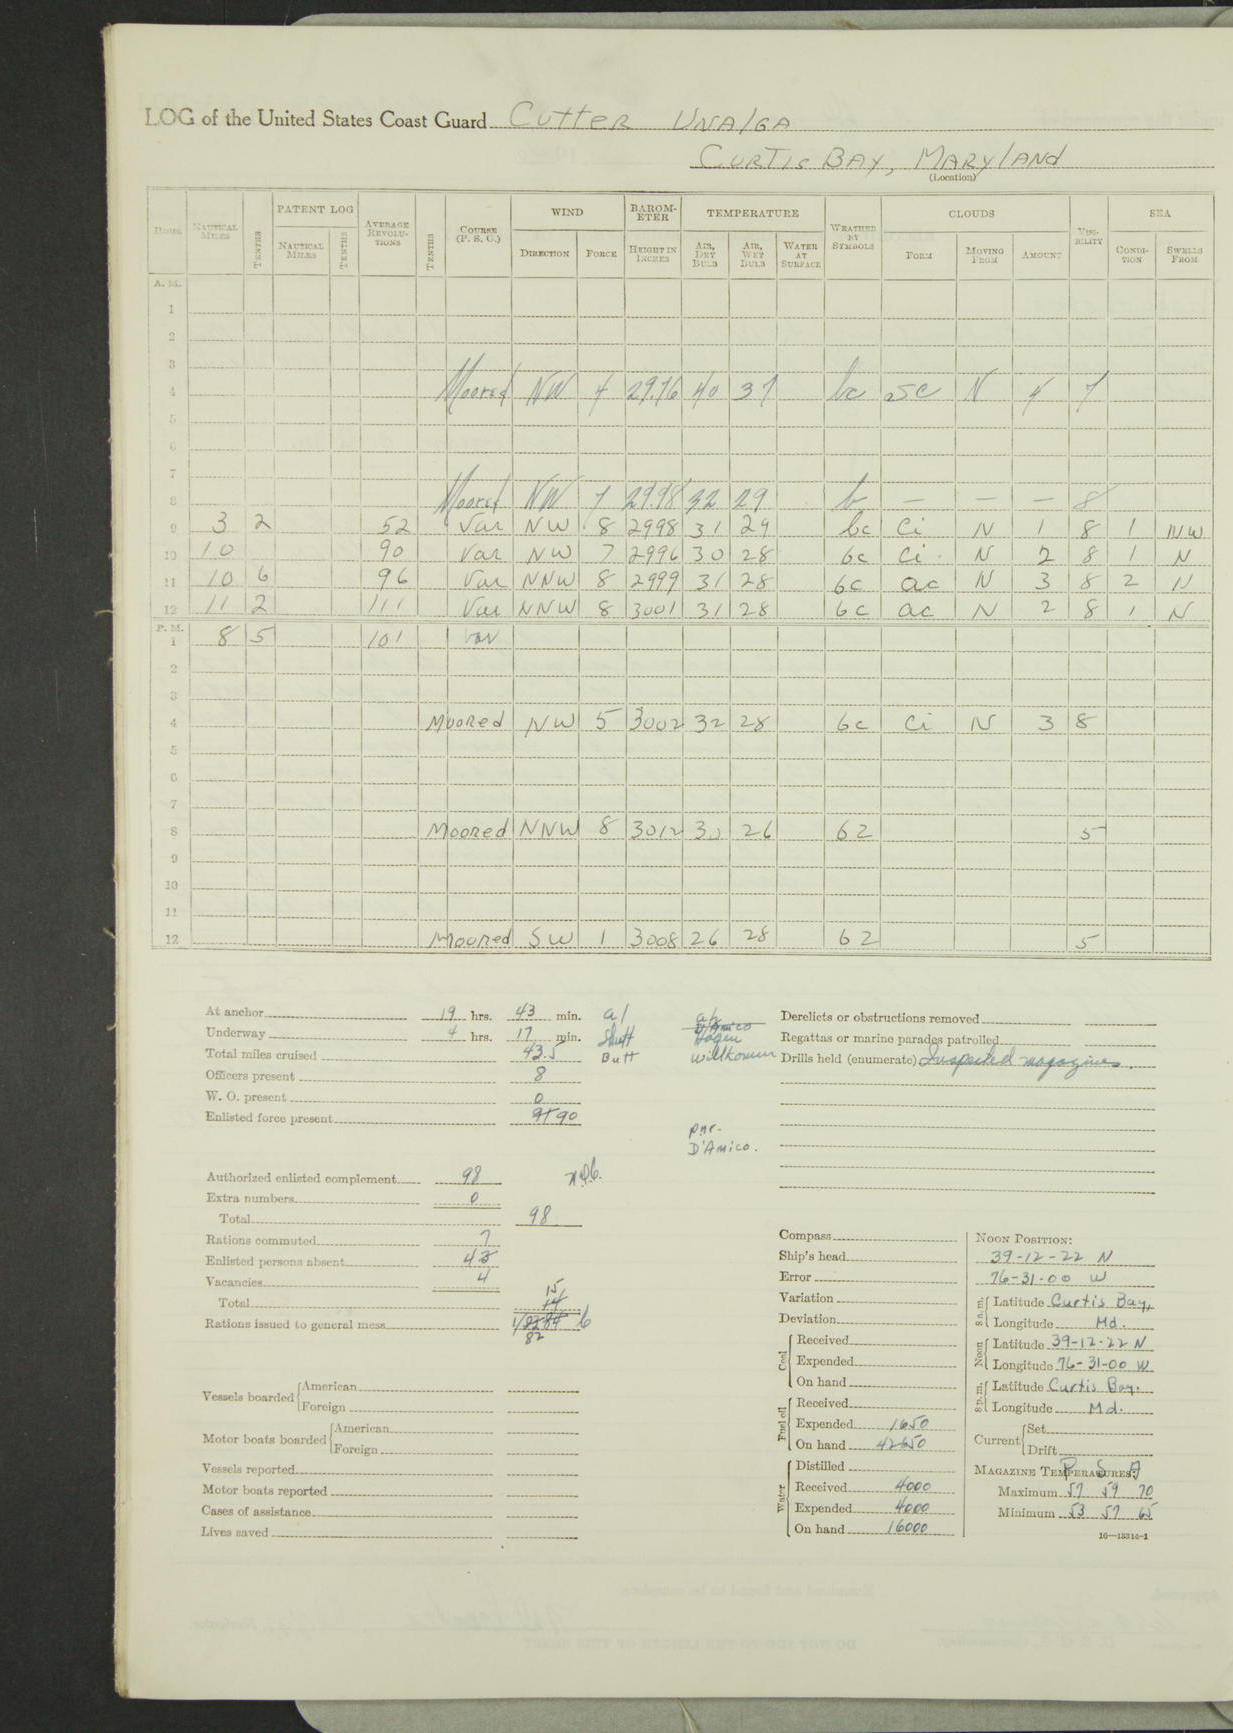 LOG of the United States Coast Guard CUTTER UNALGA
CURTIS BAY, MARYLAND
(Location)
HOUR NAUTICAL MILES TENTHS PATENT LOG NAUTICAL MILES TENTHS AVERAGE REVOLUTIONS TENTHS COURSE (P. S. C.) WIND DIRECTION FORCE BAROMETER HEIGHT IN INCHES TEMPERATURE AIR, DRY BULB AIR, WET BULB WATER AT SURFACE WEATHER BY SYMBOLS CLOUDS FORM MOVING FROM AMOUNT VISIBILITY SEA CONDITION SWELLS FROM
A. M.
1
2
3
4 Moored NW 4 29.76 40 37 bc SC N 4 7
5
6
7
8 Moored NW 7 29.98 32 29 b — — — 8
9 3 2 52 Var NW 8 2998 31 29 bc Ci N 1 8 1 NW
10 10 90 Var NW 7 2996 30 28 bc Ci N 2 8 1 N
11 10 6 96 Var NNW 8 2999 31 28 bc ac N 3 8 2 N
12 11 2 111 Var NNW 8 3001 31 28 bc ac N 2 8 1 N
P. M.
1 8 5 101 Var
2
3
4 Moored NW 5 3002 32 28 bc Ci N 3 8
5
6
7
8 Moored NNW 8 3012 30 26 bz 5
9
10
11
12 Moored SW 1 3008 26 28 bz 5
At anchor 19 hrs. 43 min.
Underway 4 hrs. 17 min.
Total miles cruised 43.5
Officers present 8
W. O. present 0
Enlisted force present 91 90
a/l
Shutt
Butt
D'Amico
Willkomm
Par.
D'Amico.
Authorized enlisted complement 98
Extra numbers 0
Total 98
Rations commuted 7
Enlisted persons absent 4
Vacancies 4
Total 15
14
Rations issued to general mess 84
82
Vessels boarded American
Foreign
Motor boats boarded American
Foreign
Vessels reported
Motor boats reported
Cases of assistance
Lives saved
Derelicts or obstructions removed
Regattas or marine parades patrolled
Drills held (enumerate) Inspected magazines.
Compass
Ship's head
Error
Variation
Deviation
Coal Received
Expended
On hand
Fuel oil Received
Expended 1650
On hand 42650
Water Distilled
Received 4000
Expended 4000
On hand 16000
NOON POSITION:
39-12-22 N
76-31-00 W
8 a.m. Latitude Curtis Bay,
Longitude Md.
Noon Latitude 39-12-22 N
Longitude 76-31-00 W
8 p.m. Latitude Curtis Bay.
Longitude Md.
Current Set
Drift
MAGAZINE TEMPERATURES: P S A
Maximum 57 59 70
Minimum 53 57 65
16—13314-1